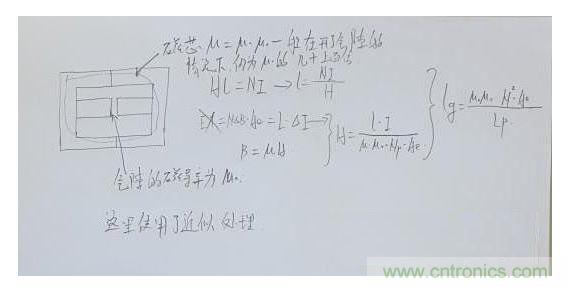 磁芯 μ = μr·μ0 一般在开了气隙的
情况下,仍为μ0的几十上百倍
Hl = NI → l = NI/H
= N·ΔB·Ae = L·ΔI →
H = L·I/(μr·μ0·Np·Ae)
lg = μr·μ0·N²·Ae/Lp
B = μH
气隙的磁导率为 μ0
这里使用了近似处理
www.cntronics.com